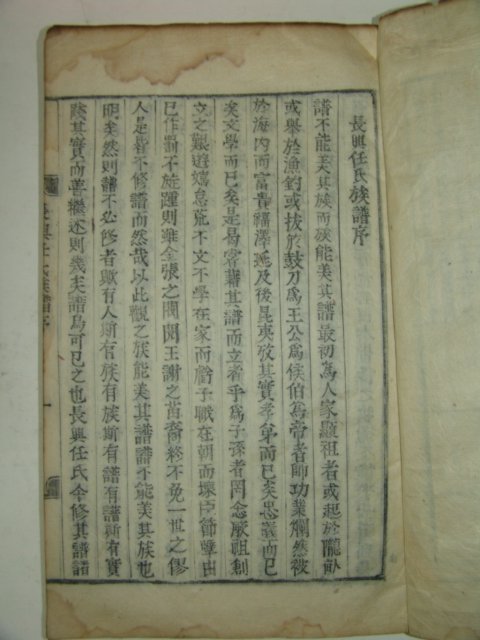 長興任氏族譜序
譜不能美其族而族能美其譜最初爲人家顯祖者或起於隴畝
或擧於漁釣或拔於鼓刀爲王公爲侯伯爲帝者師功業爛然被
於海內而富貴福澤延及後昆夷攷其實孝弟而已矣忠義而已
矣文學而已矣是曷嘗藉其譜而立者乎爲子孫者罔念厥祖創
立之艱遊嬉怠荒不文不學在家而虧子職在朝而壞臣節孽由
已作罰不旋踵則雖金張之閥閱王謝之苗裔終不免一世之僇
人是皆不修譜而然哉以此觀之族能美其譜譜不能美其族也
明矣然則譜不必修者歟有人斯有族有族斯有譜有譜斯有實
踐其實而善繼述則幾矣譜烏可已之也長興任氏今修其譜諸
長興任氏族譜序 一